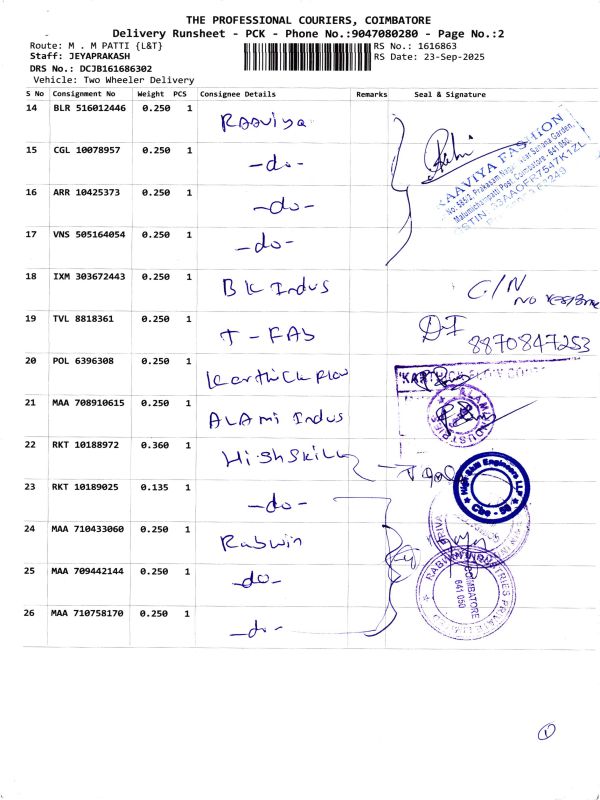 THE PROFESSIONAL COURIERS, COIMBATORE
Delivery Runsheet - PCK - Phone No.:9047080280 - Page No.:2
Route: M . M PATTI {L&T}
RS No.: 1616863
Staff: JEYAPRAKASH
RS Date: 23-Sep-2025
DRS No.: DCJB161686302
Vehicle: Two Wheeler Delivery
S No Consignment No Weight PCS Consignee Details Remarks Seal & Signature
14 BLR 516012446 0.250 1 Raaviya
15 CGL 10078957 0.250 1 -do-
RAAVIYA FASHION
16 ARR 10425373 0.250 1 -do-
17 VNS 505164054 0.250 1 -do-
18 IXM 303672443 0.250 1 BK Indus C/N
19 TVL 8818361 0.250 1 T-FAB
8870847253
20 POL 6396308 0.250 1 Karthick Flow
KARTHICK FLOW
21 MAA 708910615 0.250 1 ALAmi Indus
ALAMI INDUSTRIES
22 RKT 10188972 0.360 1 HighSkill
High Skill Engineers LLP
23 RKT 10189025 0.135 1 -do-
24 MAA 710433060 0.250 1 Rabwin
25 MAA 709442144 0.250 1 -do-
RABWIN INDUSTRIES PRIVATE LIMITED
COIMBATORE
641 050
26 MAA 710758170 0.250 1 -do-
1